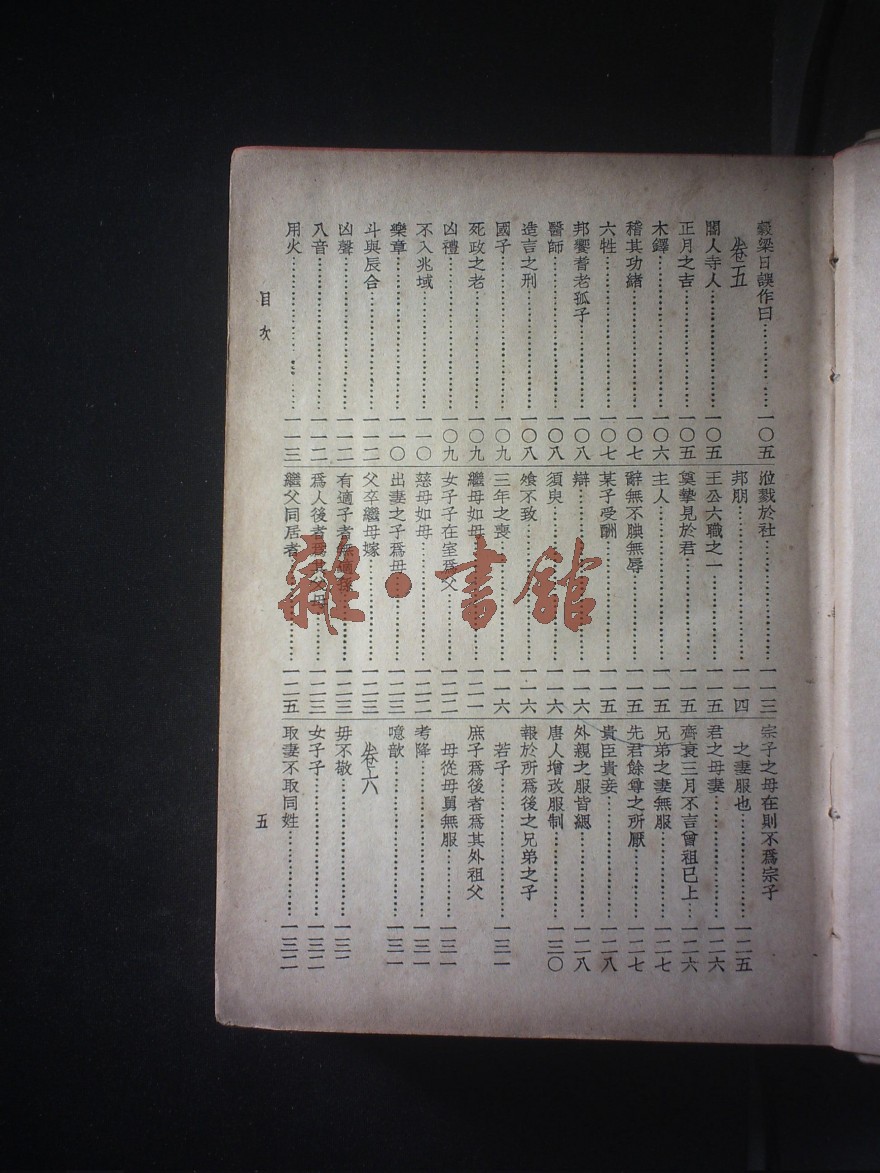 穀梁日誤作曰……一〇五
卷五
閽人寺人……一〇五
正月之吉……一〇五
木鐸……一〇六
稽其功緒……一〇七
六牲……一〇七
邦饗耆老孤子……一〇八
醫師……一〇八
造言之刑……一〇八
國子……一〇九
死政之老……一〇九
凶禮……一〇九
不入兆域……一一〇
樂章……一一〇
斗與辰合……一一二
凶聲……一一二
八音……一一二
用火……一一三
涖戮於社……一一三
邦朋……一一四
王公六職之一……一一五
奠摯見於君……一一五
主人……一一五
辭無不腆無辱……一一五
某子受酬……一一五
辯……一一六
須臾……一一六
飧不致……一一六
三年之喪……一一六
繼母如母……一二一
女子子在室爲父……一二二
慈母如母……一二二
出妻之子爲母……一二三
父卒繼母嫁……一二三
有適子者無適孫……一二三
爲人後者爲其父母……一二三
繼父同居者……一二五
宗子之母在則不爲宗子
之妻服也……一二五
君之母妻……一二六
齊衰三月不言曾祖已上……一二六
兄弟之妻無服……一二七
先君餘尊之所厭……一二七
貴臣貴妾……一二八
外親之服皆緦……一二八
唐人增改服制……一三〇
報於所爲後之兄弟之子
若子……一三一
庶子爲後者爲其外祖父
母從母舅無服……一三一
考降……一三一
噫歆……一三一
卷六
毋不敬……一三二
女子子……一三二
取妻不取同姓……一三二
目次
五
雜·書館